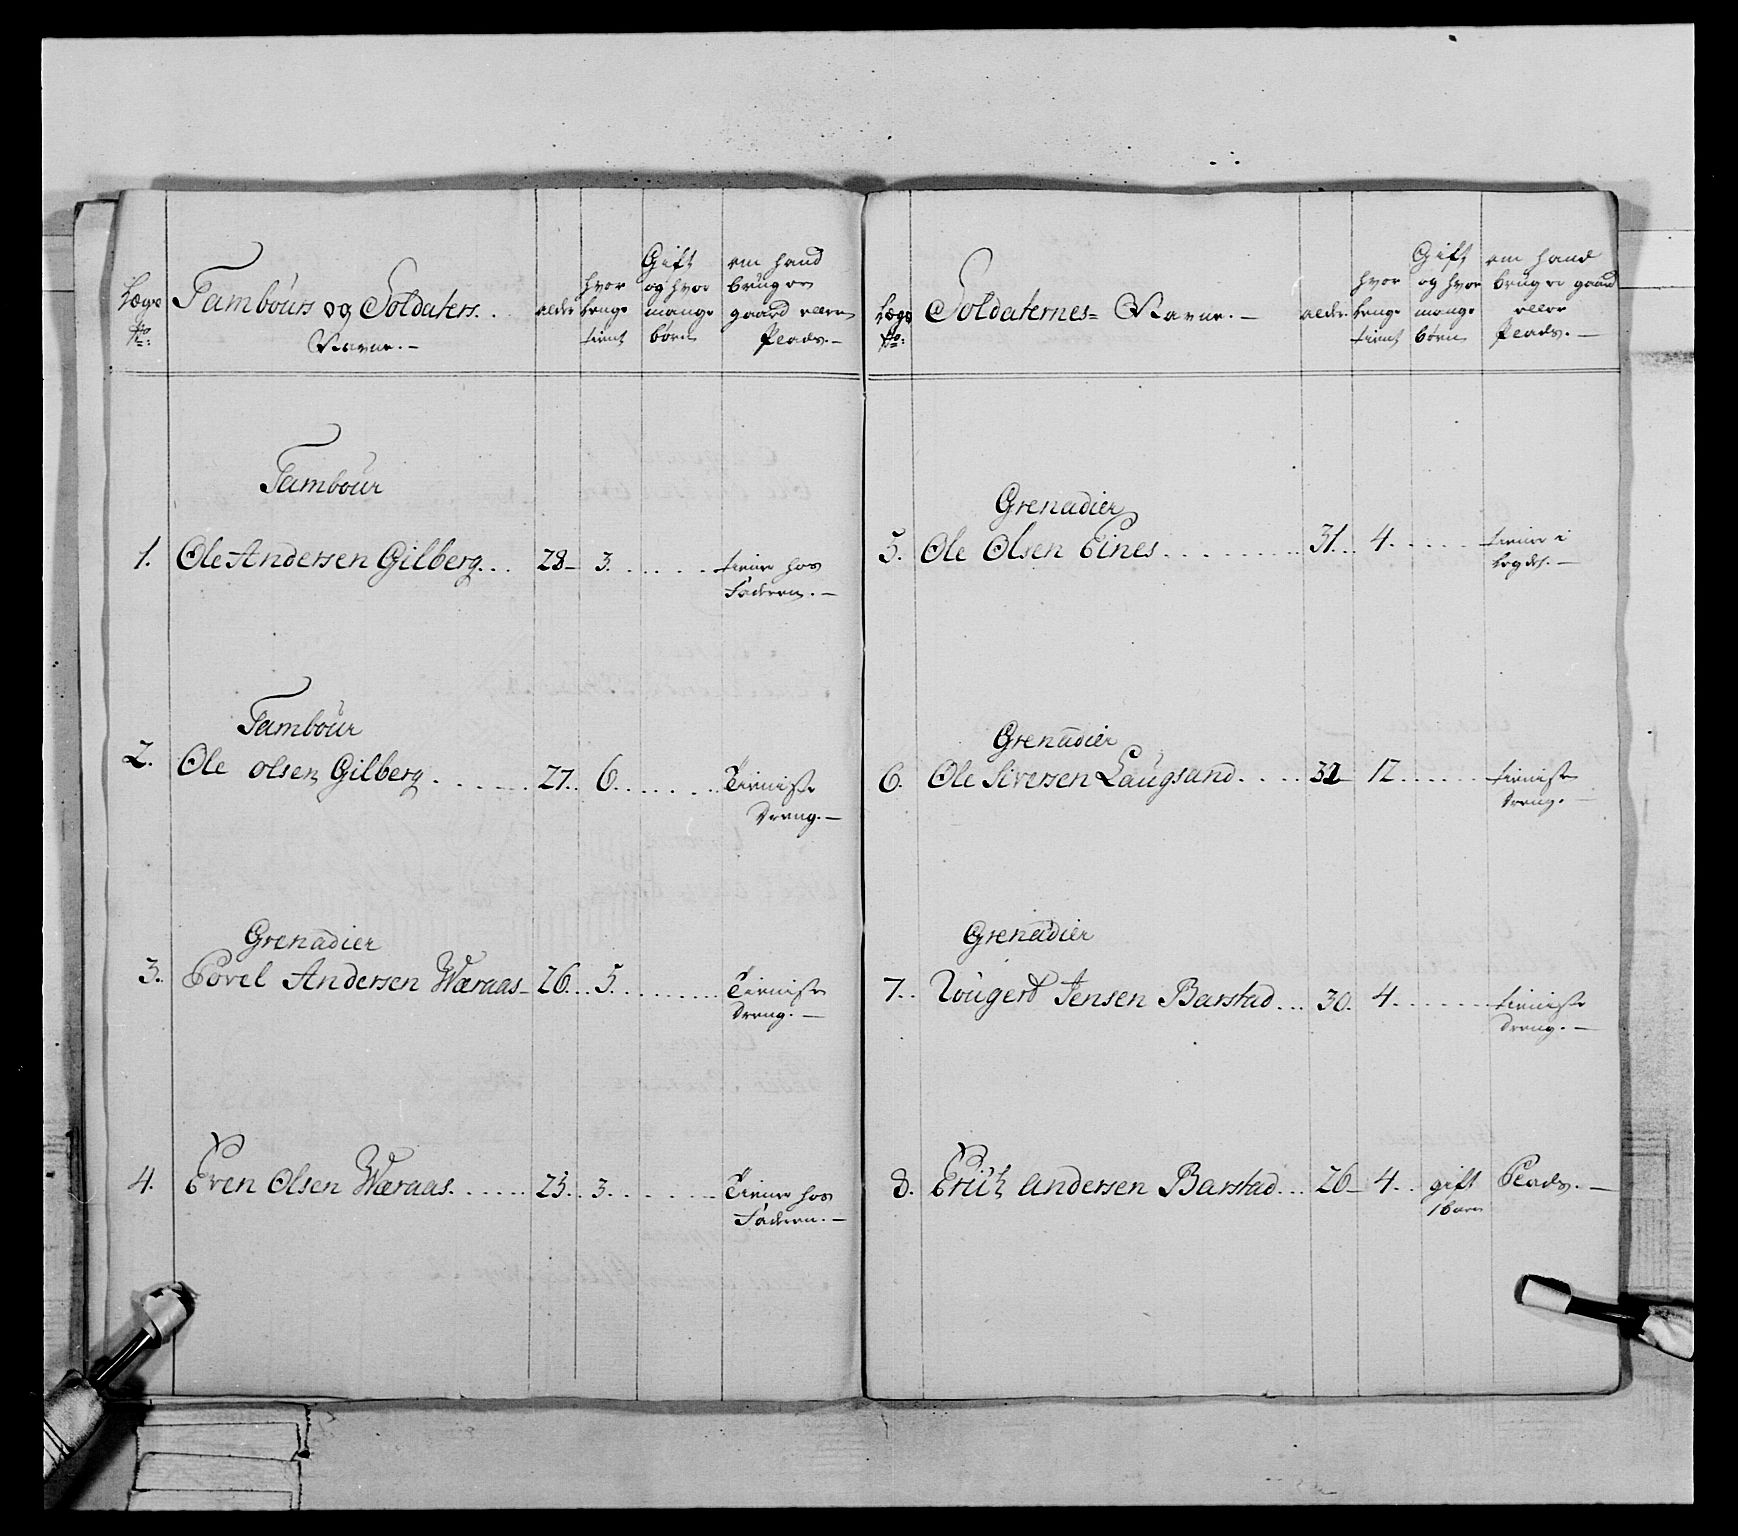 Lægs No:
Tambours og Soldaters.
Navne.-
alder
hvor lenge tient
Gift og hvor mange børn
om hand bruger gaard eller Plads.-
Tambour
1. Ole Andersen Gilberg... 28- 3. tiener hos Faderen.-
Tambour
2. Ole olsen Gilberg 27.. 6. Tieniste Dreng.-
Grenadier
3. Povel Andersen Wæraas- 26.. 5. Tieniste Dreng.-
4. Even Olsen Wæraas. 25.. 3. Tiener hos Faderen.-
Lægs No:
Soldaternes= Navne.-
alder
hvor lenge tient
Gift og hvor mange børn
om hand bruger gaard eller Plads.-
Grenadier
5. Ole Olsen Eines 31... 4. tiener i
Grenadier
6. Ole Siversen Laugsand 32 12. tieniste Dreng.-
Grenadier
7.. Jensen Barstad... 30. 4. tieniste Dreng.-
8. Erich andersen Barstad... 26- 4.. gift 1 barn Plads.-